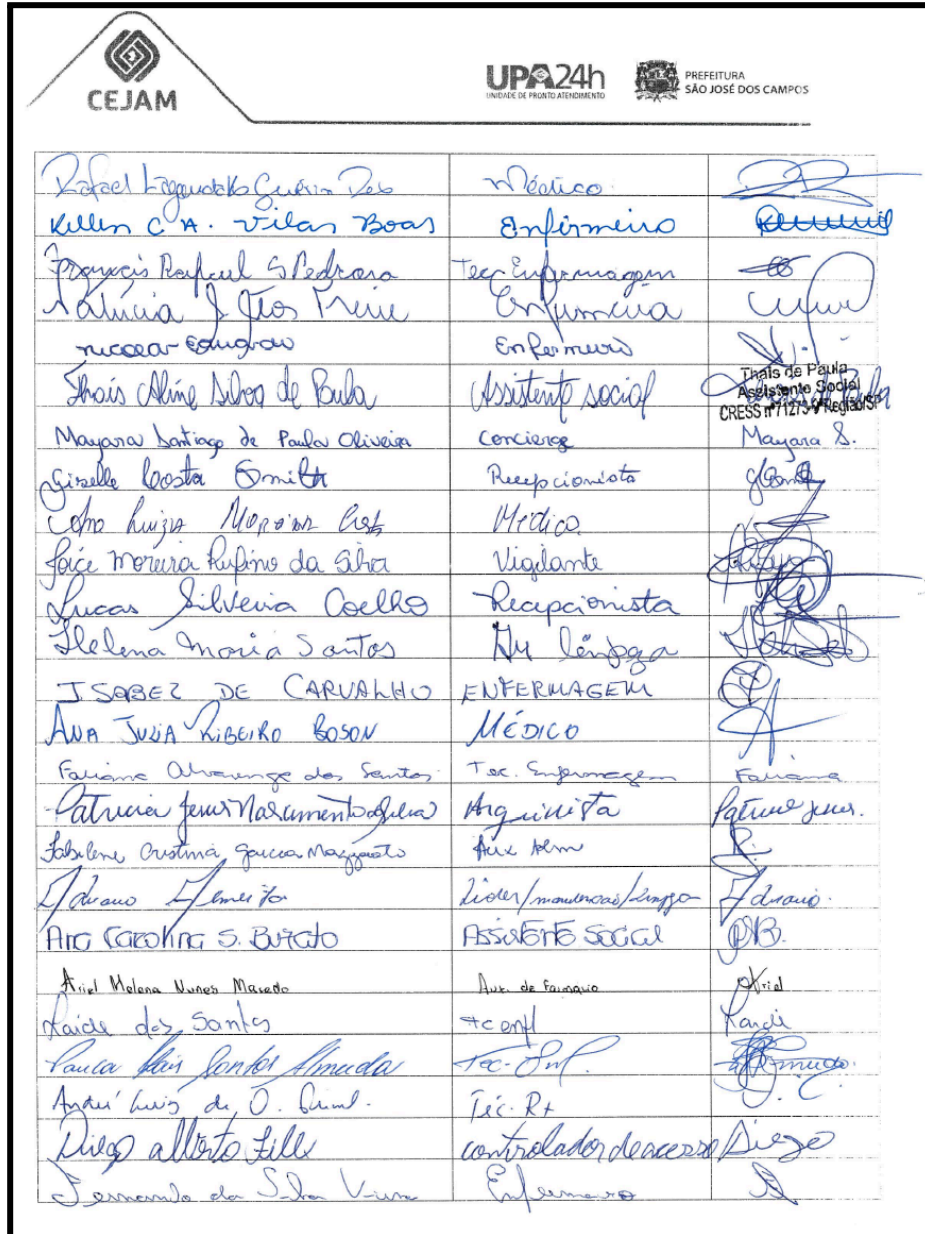 CEJAM
UPA24h
UNIDADE DE PRONTO ATENDIMENTO
PREFEITURA
SÃO JOSÉ DOS CAMPOS
Rafael Médico
Kellen C A. Vilas Boas Enfirmeiro
Rafael S Pedrosa Tec Enfermagem
Enfermeiro
Thais Aline Silva de Paula Assistente social
Thais de Paula
Assistente Social
CRESS nº 71275 9ª Região/SP
Mayara Santiago de Paula Oliveira concierge Mayara S.
Giselle Costa Recepcionista
Ana Luiza Médica
Joice Moreira Rufino da Silva Vigilante
Lucas Silveira Coelho Recepcionista
Helena Maria Santos
ISABEL DE CARVALHO ENFERMAGEM
ANA JULIA RIBEIRO BOSON MÉDICO
Fabiana Alvarenga dos Santos Tec. Enfermagem Fabiana
Patricia Jesus Nascimento Arquivista Patricia Jesus.
Cristina Garcia Aux Adm
Adriano Lider/manutenção/limpeza Adriano.
Ana Carolina S. Burato ASSISTENTE SOCIAL
Ariel Melena Nunes Macedo Aux. de Farmacia Ariel
dos Santos
Santos Almeida Tec. Enf.
André Luis de O. Téc. Rx
Diego alberto controlador de acesso Diego
Fernando da Silva Enfermeiro